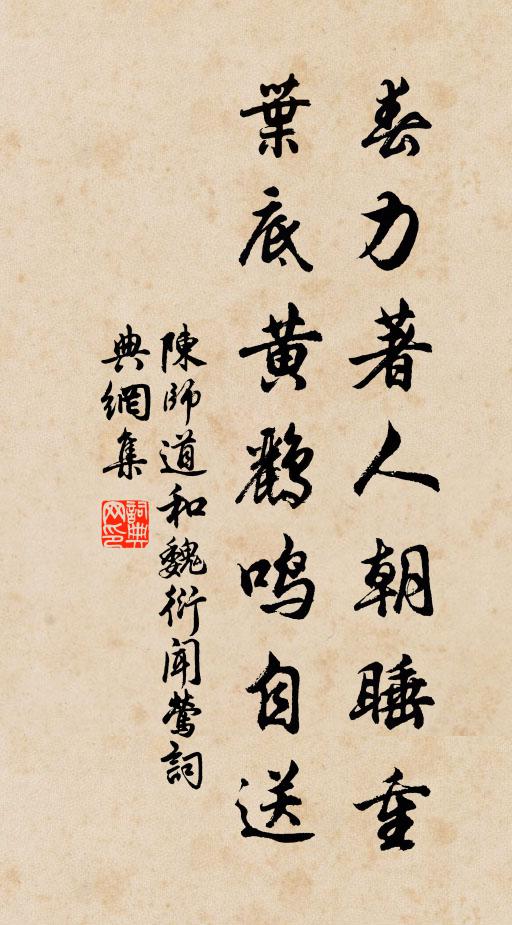 春力著人朝睡重
葉底黃鸝鳴自送
陳師道和魏衍聞鶯詞
典網集
詞典網印